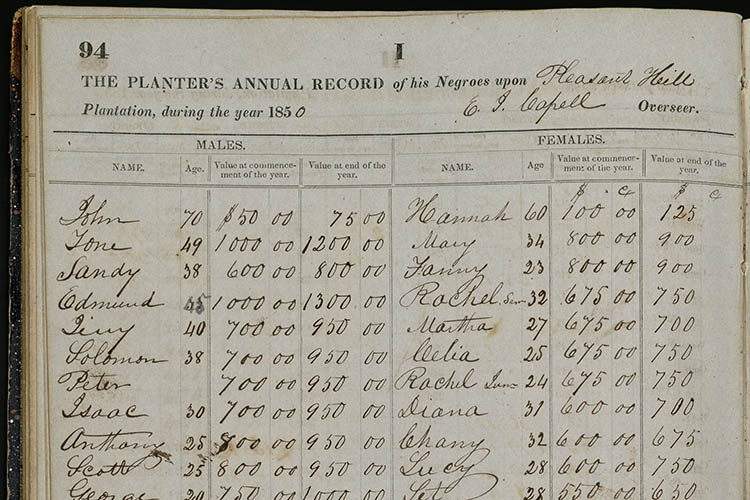 94 I
THE PLANTER'S ANNUAL RECORD of his Negroes upon Pleasant Hill
Plantation, during the year 1850 E. J. Capell Overseer.
MALES. FEMALES.
NAME. Age. Value at commence-ment of the year. Value at end of the year. NAME. Age Value at commence-ment of the year. Value at end of the year.
$ c $ c
John 70 $50 00 75 00 Hannah 60 100 00 125
Tone 49 1000 00 1200 00 Mary 34 800 00 900
Sandy 38 600 00 800 00 Fanny 23 800 00 900
Edmund 45 1000 00 1300 00 Rachel Sen 32 675 00 750
40 700 00 950 00 Martha 27 675 00 700
Solomon 38 700 00 950 00 Celia 25 675 00 750
Peter 700 00 950 00 Rachel Jun 24 675 00 750
Isaac 30 700 00 950 00 Diana 31 600 00 700
Anthony 25 800 00 950 00 Chany 32 600 00 675
Scott 25 800 00 950 00 Lucy 28 600 00 750
George 20 750 1000 00 28 550 650